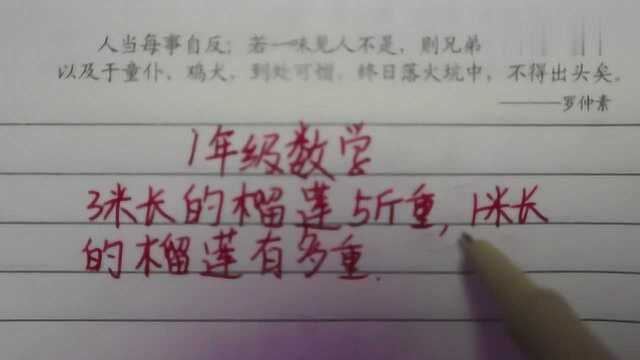 人当每事自反；若一味见人不是，则兄弟
以及于童仆，鸡犬，到处可憎，终日落火坑中，不得出头矣。
———罗仲素
1年级数学
3米长的榴莲5斤重，1米长
的榴莲有多重.